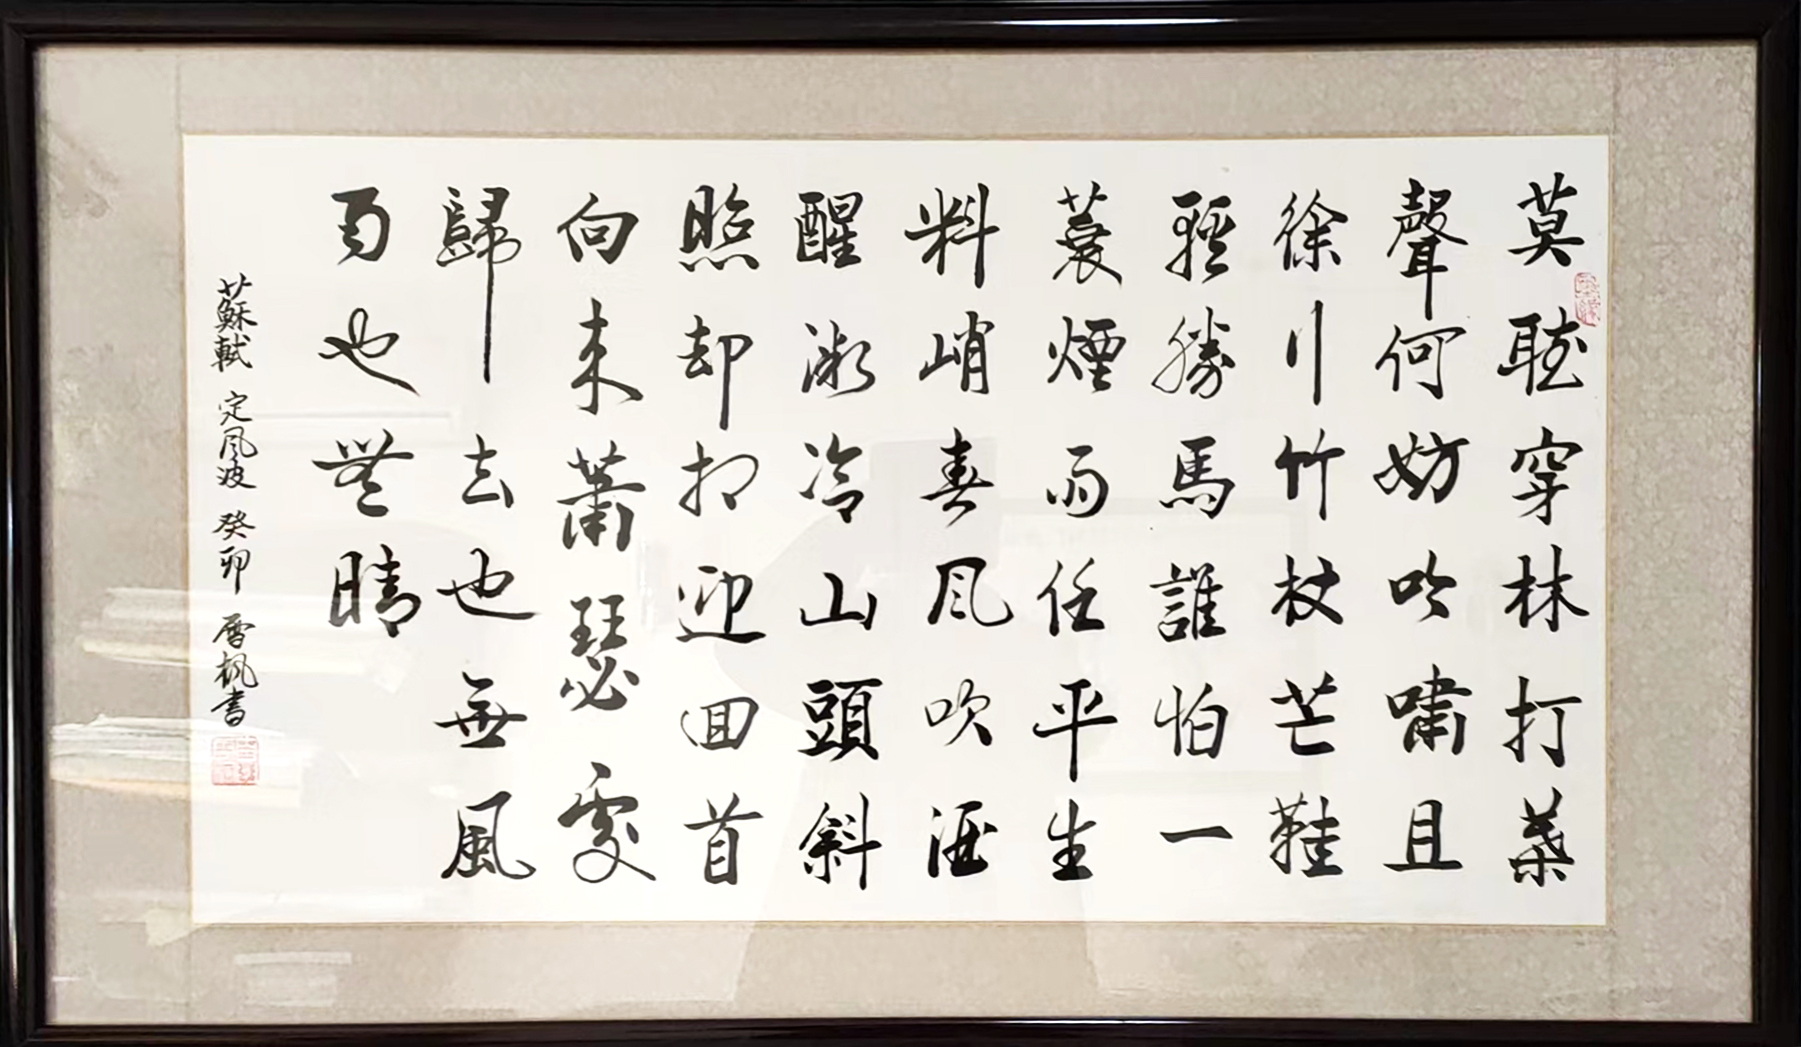 莫聽穿林打葉
聲何妨吟嘯且
徐行竹杖芒鞋
輕勝馬誰怕一
蓑煙雨任平生
料峭春風吹酒
醒微冷山頭斜
照却相迎回首
向來蕭瑟處
歸去也無風
雨也無晴
蘇軾 定風波 癸卯 層楓書